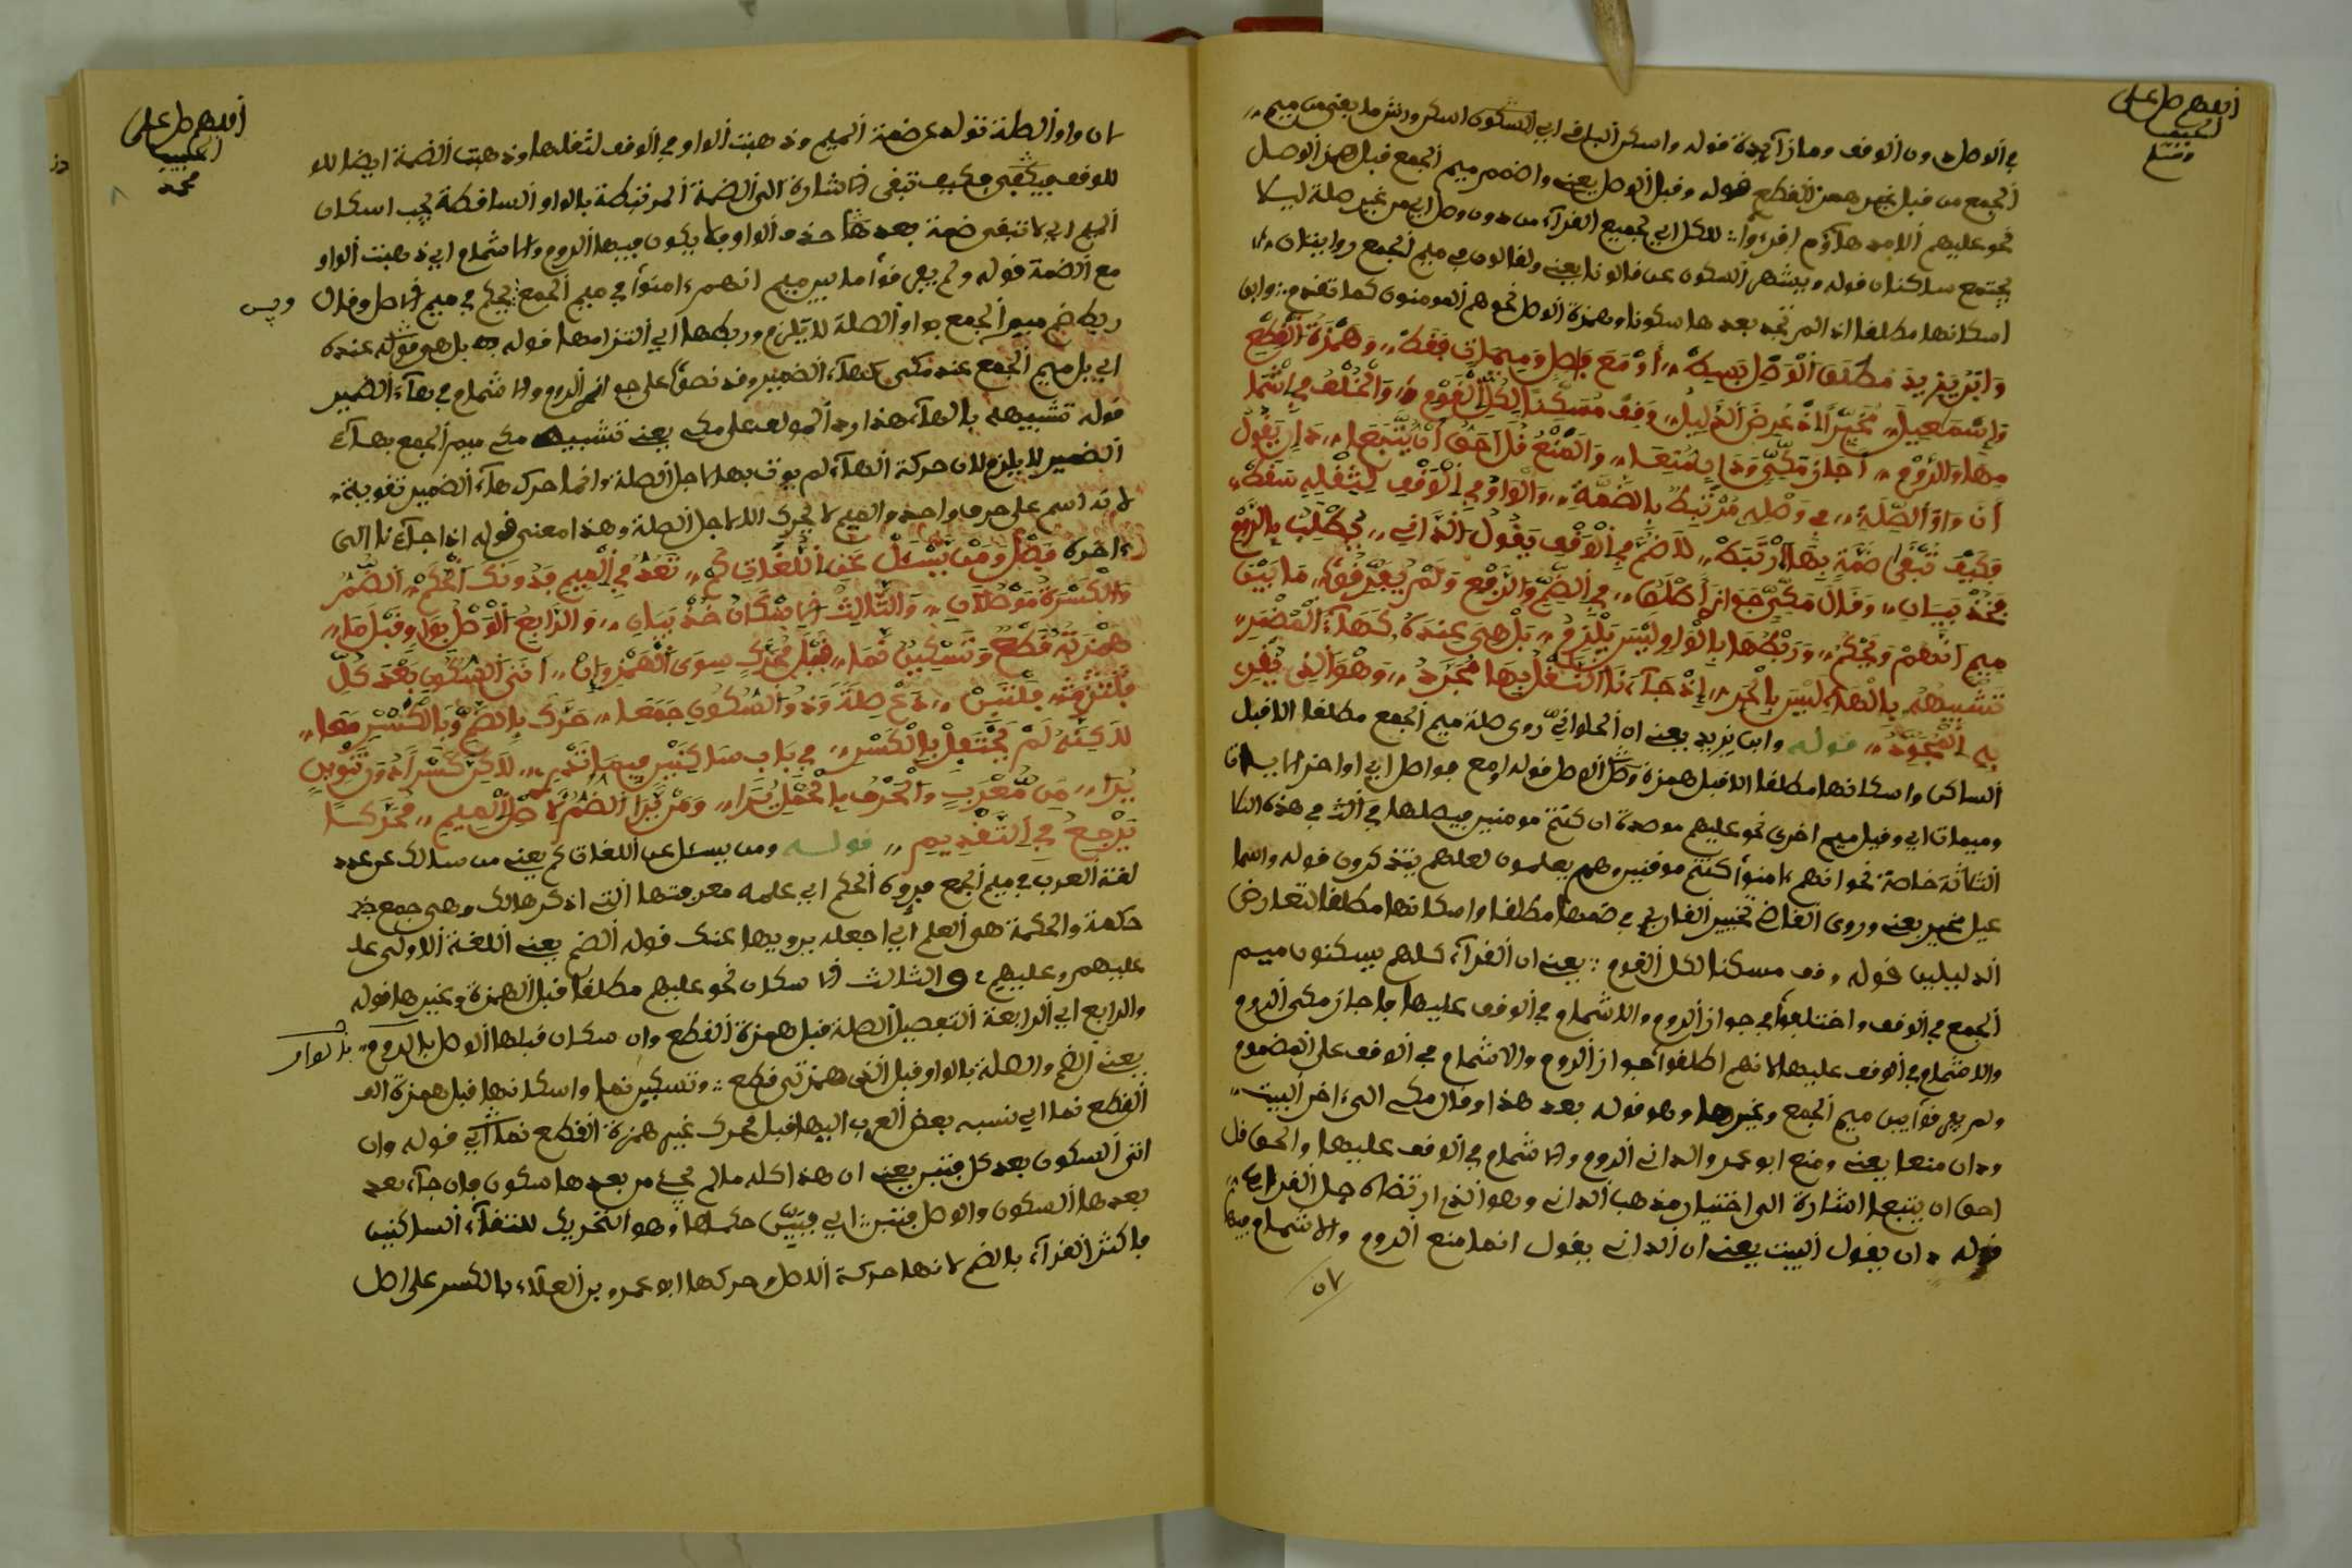 أللهم صل على
الحبيب
وسلم
في ألوصل دون ألوقف وما زائدة قوله واسكن ألباقي اي ألسكون اسكن ورش ما بقي من ميم
ألجمع من قبل غير همز ألقطع قوله وقبل ألوصل يعني واضمم ميم ألجمع قبل همز ألوصل
نحو عليهم ألا مد هاؤم اقرءوا للكل اي لجميع القراء من دون وصل اي من غير صلة ليلا
يجتمع ساكنان قوله ويشهر ألسكون عن قالونا يعني ولقالون في ميم ألجمع روايتان
اسكانها مطلقا اذا لم تجد بعدها سكونا وهمزة ألوصل نحو هم ألمومنون كما تقدم وابن
وَابْنُ يَزِيدَ مُطْلَقَ ألْوَصْلِ بَسِطْ أَوْ مَعَ فَاصِلٍ وَمِيمَاتٍ فَقَطْ وَهَمْزَةُ ألْقَطْعِ
وَإِسْمَعِيلَ خَيَّرَا اذْ عَرَضَ ألدَّلِيلْ وَقِفْ مُسَكِّنًا لِكُلِّ ألْقَوْمِ وَالْخُلْفُ فِي اشْمَا
مِهَا وَالرَّوْمِ أَجَازَ مَكِّيٌّ وَدَانٍ مَنَعَا وَالْمَنْعُ قُلْ أَحَقُّ أَنْ يُتَّبَعَا دَانٍ يَقُولُ
أَنَّ وَاوَ ألصِّلَةِ فِي وَصْلِهِ مُرْتَبِطٌ بِالضَّمَّةِ وَالْوَاوُ فِي ألْوَقْفِ لِثِقْلِهِ سَقَطْ
فَكَيْفَ تَبْقَى ضَمَّةٌ بِهَا ارْتَبَطْ لَا ضَمَّ فِي ألْوَقْفِ يَقُولُ ألدَّانِي يُطْلَبُ بِالرَّوْمِ
فَخُذْ بَيَانِ وَقَالَ مَكِّيٌّ جَوَازٌ أَصْلُهَا فِي ألضَّمِّ وَالرَّفْعِ وَلَمْ يُفَرِّقُوا مَا بَيْنَ
مِيمِ أَنَّهُمْ وَيَحْكُمْ وَرَبْطُهَا بِالْوَاوِ لَيْسَ يَلْزَمُ بَلْ هِيَ عِنْدَهُ كَهَاءِ ألْمُضْمَرِ
تَشْبِيهُهُ بِالْهَاءِ لَيْسَ بِالْحَرِ إِذْ جَاءَنَا ألنَّقْلُ بِهَا مُجَرَّدُ وَهْوَ ألَّذِي يُقْرِي
بِهِ ألْمُجَوِّدُ قوله وابن يزيد يعني ان ألحلواني روى صلة ميم ألجمع مطلقا الا قبل
ألساكن واسكانها مطلقا الا قبل همزة وصل ألوصل قوله او مع فواصل اي اواخر الايات
وميمات اي وقبل ميم اخرى نحو عليهم موصدة ان كنتم مومنين فيصلها في ألثلاث في هذه الثلا
ألثلاثة خاصة نحو انهم ءامنوا كنتم موقنين وهم يعلمون لعلهم يتذكرون قوله واسما
عيل خير يعني وروى ألقاضي تخيير ألقارئ في ضمها مطلقا واسكانها مطلقا لتعارض
ألدليلين قوله وقف مسكنا لكل ألقوم يعني ان ألقراء كلهم يسكنون ميم
ألجمع في ألوقف واختلفوا في جواز ألروم والاشمام في ألوقف عليها فاجاز مكي ألروم
والاشمام في ألوقف عليها لانهم اطلقوا جواز ألروم والاشمام في ألوقف على ألمضموم
ولم يفرقوا بين ميم ألجمع وغيرها وهو قوله بعد هذا وقال مكي الى ءاخر ألبيت
ودان منعا يعني ومنع ابو عمرو ألداني ألروم والاشمام في ألوقف عليها والحق قل
احق ان يتبعا اشارة الى اختيار مذهب ألداني وهو ألذي ارتضاه جل ألقراء
قوله دان يقول ألبيت يعني ان ألداني يقول انما منع ألروم والاشمام فيها
٥٧
أللهم صل على
الحبيب
محمد
ان واو ألصلة تولد عن ضمة ألميم وذهبت ألواو في ألوقف لثقلها وذهبت ألضمة ايضا للو
للوقف فكيف تبقى الاشارة الى ألضمة ألمرتبطة بالواو ألساقطة يجب اسكان
ألميم اي لا تبقى ضمة بعد حذف ألواو فلا يكون فيها ألروم والاشمام اي ذهبت ألواو
مع ألضمة قوله ولم يفرقوا ما بين ميم انهم ءامنوا في ميم ألجمع يحكم في ميم الاصل وقال
وليس
ربط ضم ميم ألجمع بواو ألصلة لا يلزم وربطها اي ألتزامها قوله بل هي قوله عنده
اي بل ميم ألجمع عند مكي كهاء ألضمير وقد نصوا على جواز ألروم والاشمام في هاء ألضمير
قوله تشبيهه بالهاء هذا رد ألمولف على مكي يعني تشبيه مكي ميم ألجمع بهاء
ألضمير لا يلزم لان حركة ألهاء لم يوت بها لاجل ألصلة وانما حرك هاء ألضمير تقوية
لانه اسم على حرف واحد والميم لا تحرك الا لاجل ألصلة وهذا معنى قوله اذا جاءنا الى
ءاخره فَصْلٌ وَمَنْ يَسْئَلْ عَنِ أللُّغَاتِ كَمْ تُعَدُّ فِي ألْمِيمِ فَدُونَكَ ألْحُكْمْ ألضَّمُّ
وَالْكَسْرَةُ مَوْصُلَانِ وَالثَّالِثُ الاسْكَانُ خُذْ بَيَانِ وَالرَّابِعُ ألْوَصْلُ بِوَاوٍ قَبْلَ مَا
هَمْزَتُهُ قَطْعٌ وَتَسْكِينٌ نَمَا قَبْلَ مُحَرَّكٍ سِوَى ألْهَمْزِ وَإِنْ أَتَى ألسُّكُونُ بَعْدَ كُلٍّ
دَعْ صِلَةً وَذُو ألسُّكُونِ جَمَعَا حَرِّكْ بِالضَّمِّ وَبِالْكَسْرِ مَعَا
لَكِنَّهُ لَمْ يَحْتَفِلْ بِالْكَسْرِ فِي بَابِ سَاكِنَيْنِ
يُرَا مِنْ مُعْرَبٍ وَالْحَرْفُ بِالْحَمْلِ يُرَا وَمَنْ يَرَا ألضَّمَّ لِأَصْلِ ألْمِيمِ مُحَرِّكًا
يَرْجِعُ فِي ألتَّقْدِيمِ قوله ومن يسئل عن أللغات كم يعني من سالك عن عدد
لغة ألعرب في ميم ألجمع فدونك ألحكم اي علمه معرفتها ألتي اذكر هالك وهي جمع
حكمة والحكمة هو ألعلم اي اجعله يرويها عنك قوله ألضم يعني أللغة ألاولى عل
عليهم وعليهم والثالث الاسكان نحو عليهم مطلقا قبل ألهمزة وغيرها قوله
والرابع اي ألرابعة ألتفصيل ألصلة قبل همزة ألقطع وان سكان قبلها ألوصل بالروم بالواو
يعني ألضم والصلة بالواو قبل ألذي همزته قطع وتسكين نما واسكانها قبل همزة ألقـ
ألقطع نما اي نسبه بعض ألعرب اليها قبل محرك غير همزة ألقطع نما اي قوله وان
اتى ألسكون بعد كل فتبين يعني ان هذا كله ما لم يجئ من بعدها سكون فان جاء بعد
بعدها ألسكون والوصل فتبين اي فبين حكمها وهو ألتحريك للتقاء ألساكنين
فاكثر ألقراء بالضم لانها حركة ألاصل وحركها ابو عمرو بن ألعلاء بالكسر على اصل